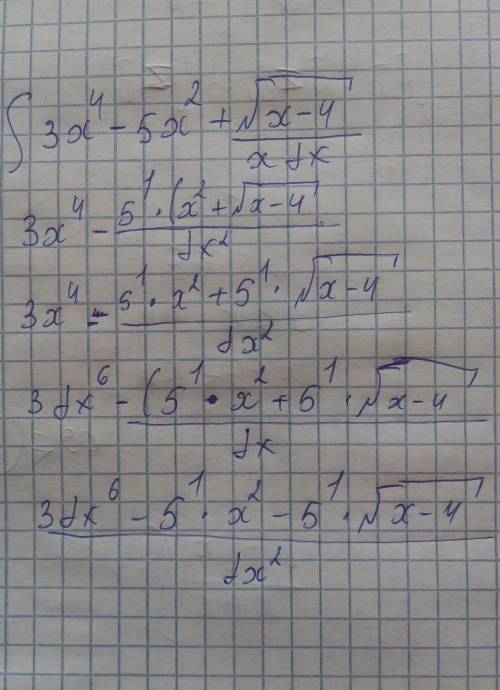 ∫ 3x⁴ - 5x² + √(x-4) / x dx
3x⁴ - 5¹·(x² + √(x-4) / dx²
3x⁴ - 5¹·x² + 5¹·√(x-4) / dx²
3dx⁶ - (5¹·x² + 5¹·√(x-4) / dx
3dx⁶ - 5¹·x² - 5¹·√(x-4) / dx²